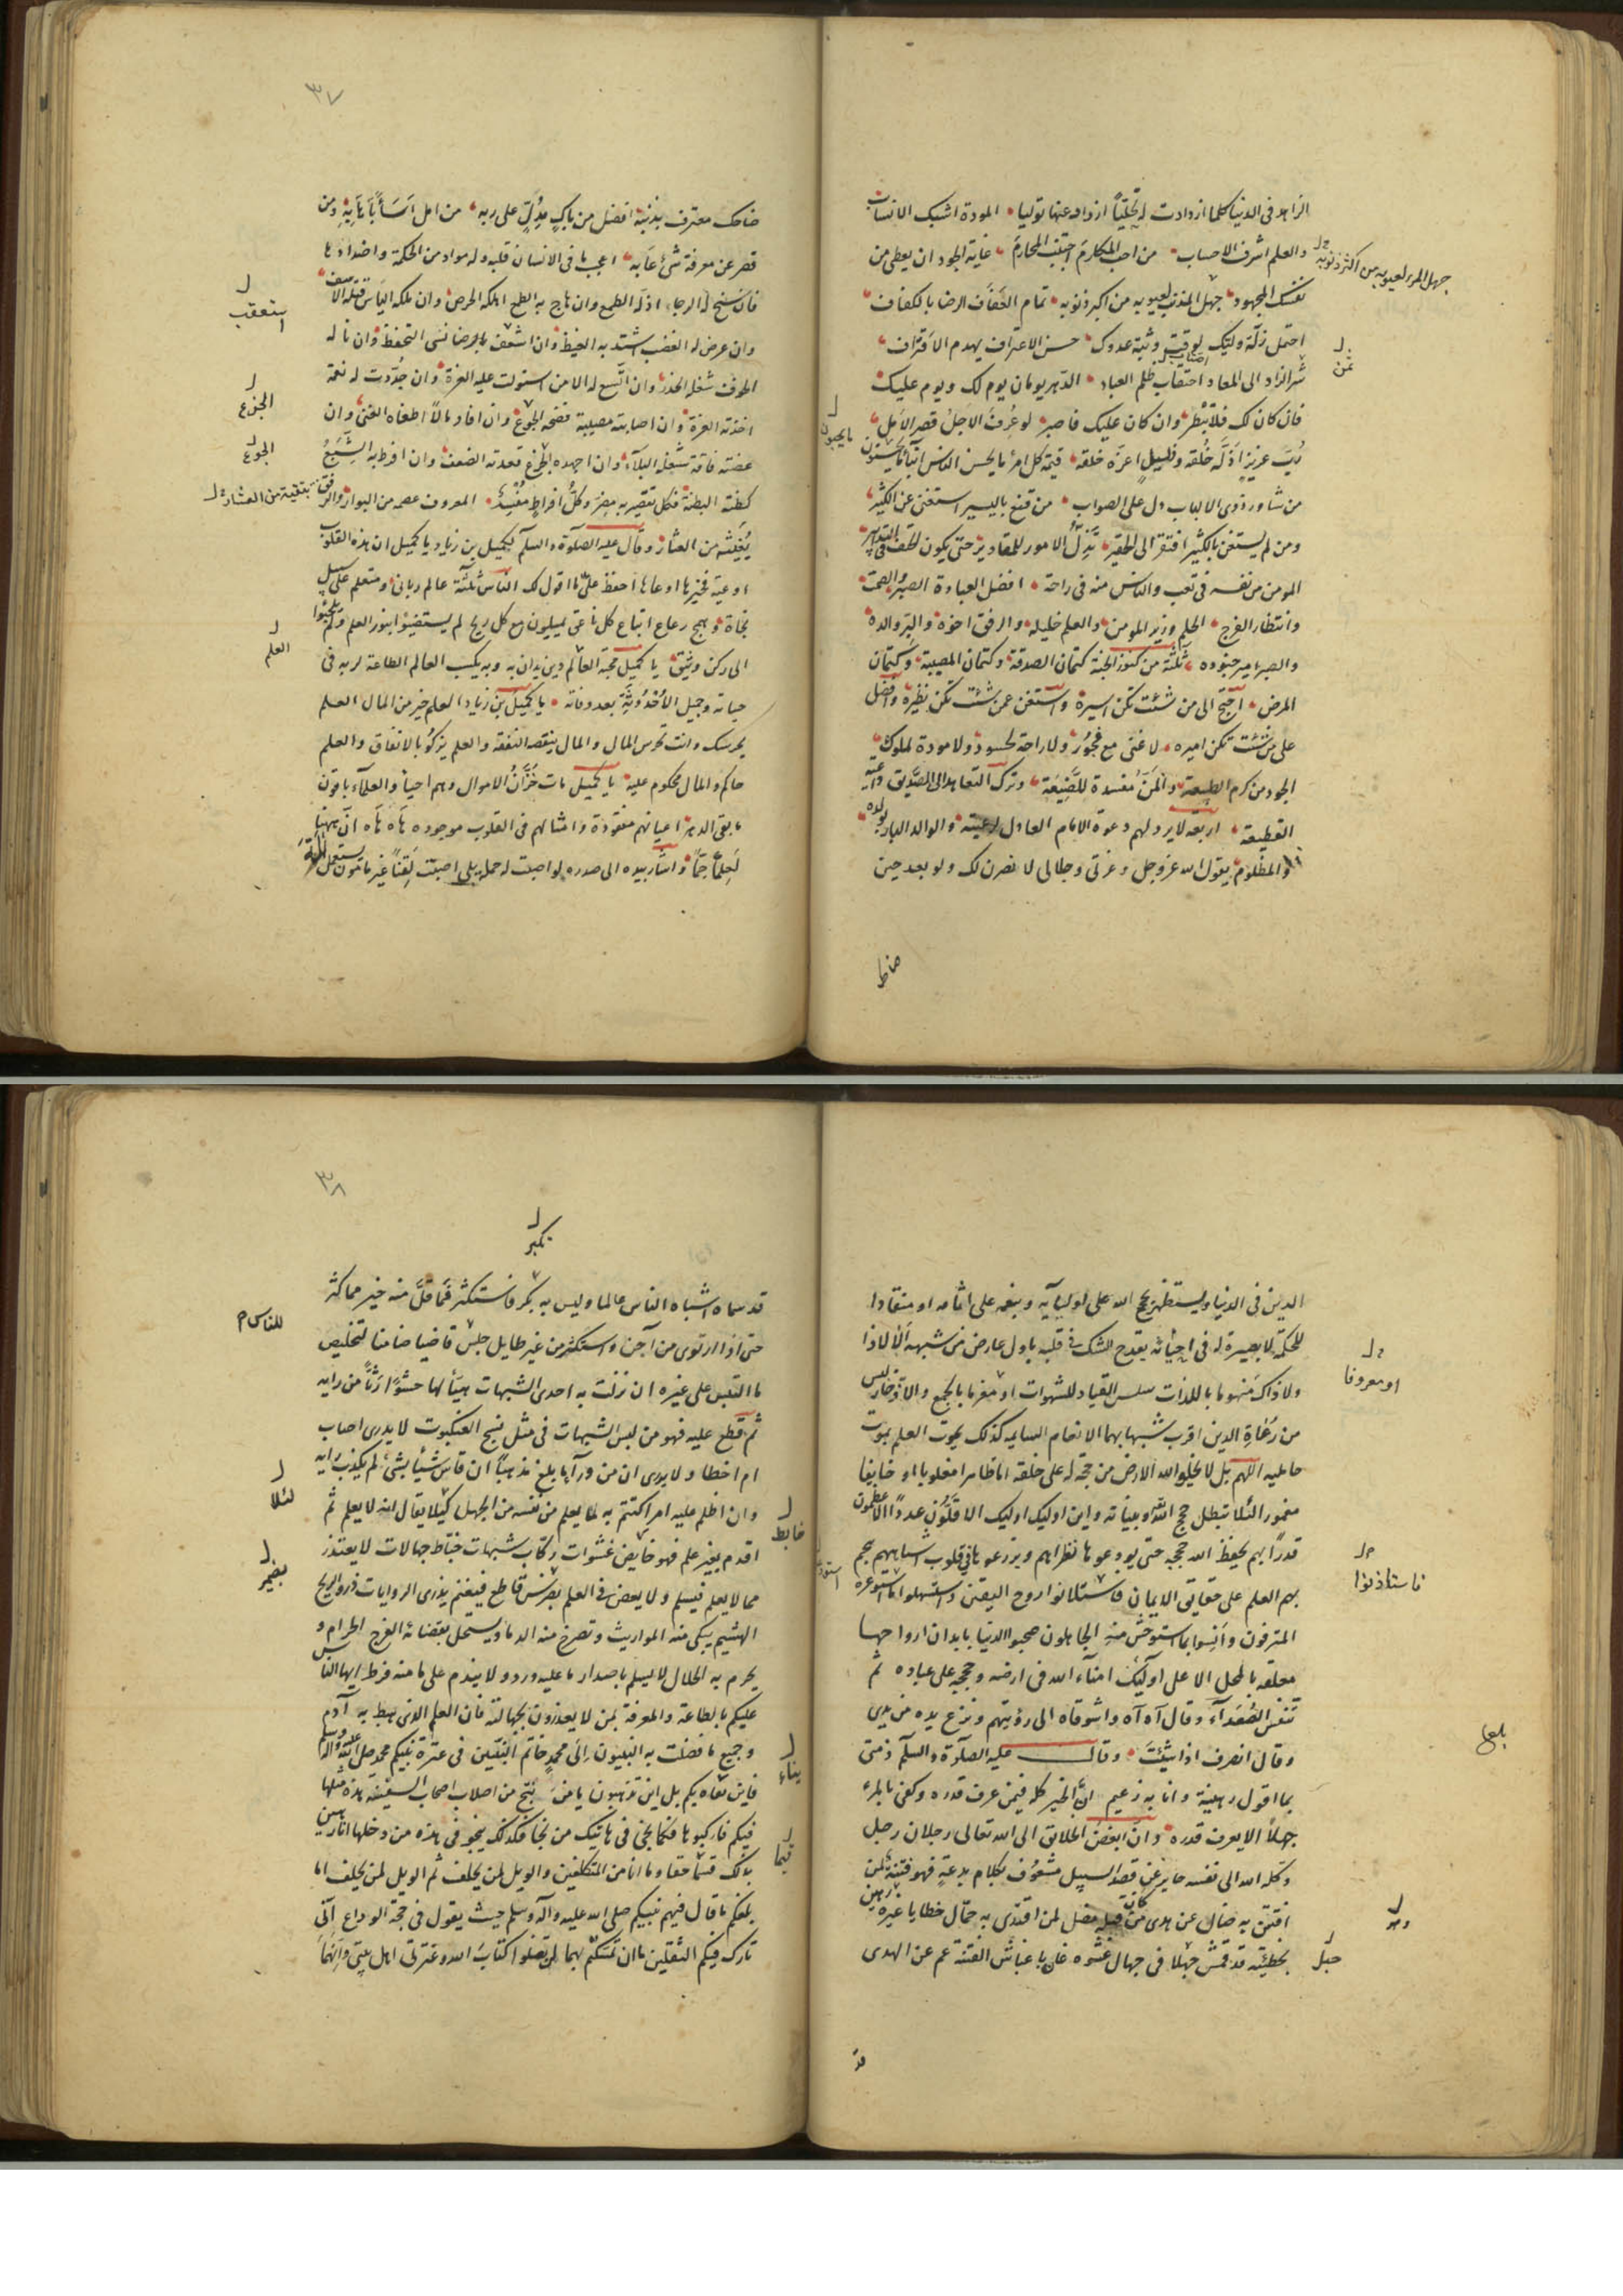 الزاهد فى الدنيا كلما ازدادت له تحلّياً ازداد عنها توليا المودة اشبك الانساب
والعلم اشرف الاحساب من احب المكارم اجتنب المحارم غاية الجود ان يعطى من
جهل المرء بعيوبه من اكثر ذنوبه
نفسك المجهود جهل المذنب لعيوبه من اكبر ذنوبه تمام العفاف الرضا بالكفاف
احتمل زلّة وليّك لوقت وثبة عدوك حسن الاعتراف يهدم الاقتراف
شر الزاد الى المعاد احتقاب ظلم العباد الدهر يومان يوم لك ويوم عليك
فان كان لك فلا تبطر وان كان عليك فاصبر لو عُرِفَ الاجلُ قصر الامل
رُبّ عزيز اذلّه خُلقه وذليل اعزّه خلقه قيمة كل امرء ما يحسن الناس ابناء ما يحسنون
من شاور ذوى الالباب دل على الصواب من قنع باليسير استغنى عن الكثير
ومن لم يستغن بالكثير افتقر الى الحقير تذلّ الامور للمقادير حتى يكون الحتف فى التدبير
المومن من نفسه فى تعب والناس منه فى راحة افضل العبادة الصبر والصمت
وانتظار الفرج الحلم وزير المومن والعلم خليله والرفق اخوه والبرّ والده
والصبر امير جنوده ثلثة من كنوز الجنة كتمان الصدقة وكتمان المصيبة وكتمان
المرض احتج الى من شئت تكن اسيره واستغن عمن شئت تكن نظيره وافضل
على من شئت تكن اميره لا غنى مع فجور ولا راحة لحسود ولا مودة لملوك
الجود من كرم الطبيعة والمنّ مفسدة للصنيعة وترك التعاهد الى الصديق داعية
القطيعة اربعة لا يرد لهم دعوة الامام العادل لرعيته والوالد البار بولده
والمظلوم يقول الله عزوجل وعزتى وجلالى لانصرن لك ولو بعد حين
ضاحك
٣٧
ضاحك معترف بذنبه افضل من باكٍ مدلٍّ على ربه من امل انساناً هابه ومن
قصر عن معرفة شئ عابه اعجب ما فى الانسان قلبه وله مواد من الحكمة واضدادها
فان سنح له الرجاء اذله الطمع وان هاج به الطمع اهلكه الحرص وان ملكه الياس قتله الاسف
وان عرض له الغضب اشتد به الغيظ وان اسعف بالرضا نسى التحفظ وان ناله
الخوف شغله الحذر وان اتّسع له الامن استولت عليه الغرة وان جددت له نعمة
اخذته العزة وان اصابته مصيبة فضحه الجوع وان افاد مالاً اطغاه الغنى وان
الجزع
عضته فاقة شغله البلاء وان اجهده الجزع قعد به الضعف وان افرط به الشبع
الجوع
كظته البطنة فكل تقصير به مضرّ وكلّ افراط مفسد المعروف عصمة من البوار والرفق
يُغيثه من العثار وقال عليه الصلوة والسلم لكميل بن زياد يا كميل ان هذه القلوب
اوعية فخيرها اوعاها احفظ عنّى ما اقول لك الناس ثلثة عالم ربانى ومتعلم على سبيل
نجاة وهمج رعاع اتباع كل ناعق يميلون مع كل ريح لم يستضيئوا بنور العلم ولم يلجئوا
الى ركن وثيق يا كميل محبة العالم دين يدان به وبه يكسب العالم الطاعة لربه فى
العلم
حياته وجميل الاُحدوثة بعد وفاته يا كميل بن زياد العلم خير من المال العلم
يحرسك وانت تحرس المال والمال ينقصه النفقة والعلم يزكو بالانفاق والعلم
حاكم والمال محكوم عليه يا كميل مات خُزّان الاموال وهم احياء والعلماء باقون
ما بقى الدهر اعيانهم مفقودة وامثالهم فى القلوب موجودة هاه هاه انّ ههنا
لعلماً جمّا واشار بيده الى صدره لو اصبت له حملة بلى اصبت لقناً غير مامون يستعمل آلة
الدين فى الدنيا ويستظهر بحجج الله على اوليائه وبنعمه على اثامه او منقادا
للحكمة لا بصيرة له فى احيائه يقدح الشك فى قلبه باول عارض من شبهة الا لا ذا
ولا ذاك منهوما باللذات سلس القياد للشهوات او مغرما بالجمع والادّخار ليس
او معروفا
من رعاة الدين اقرب شبها بهما الانعام السايمة كذلك يموت العلم بموت
حامليه اللهم بلى لا يخلو الله الارض من حجة له على خلقه اما ظاهرا معلوما او خايفا
مغمورا لئلا تبطل حجج الله وبيناته واين اوليك اوليك الاقلّون عدداً الاعظمون
قدراً بهم يحفظ الله حججه حتى يودعوها نظراهم ويزرعوها فى قلوب اشباههم هجم
بهم العلم على حقايق الايمان فاستلانوا روح اليقين واستسهلوا ما استوعره
المترفون وانسوا بما استوحش منه الجاهلون صحبوا الدنيا بابدان ارواحها
معلقة بالمحل الاعلى اوليك امناء الله فى ارضه وحججه على عباده ثم
تنفس الصعداء وقال آه آه واشوقاه الى رؤيتهم ونزع يده من يدى
وقال انصرف اذا شئت وقال عليه الصلوة والسلم ذمتى
بما اقول رهينة وانا به زعيم انّ الخير كله فيمن عرف قدره وكفى بالمرء
جهلاً الا يعرف قدره وان ابغض الخلايق الى الله تعالى رجلان رجل
وكله الله الى نفسه جاير عن قصد السبيل مشعوف بكلام بدعة فهو فتنة لمن
افتتن به ضال عن هدى من كان قبله مضل لمن اقتدى به حمّال خطايا غيره رهين
بخطيئته قد قمش جهلا فى جهال غشوه غار باغباش الفتنة عم عن الهدى
قد
٣٨
تكبر
قد سماه اشباه الناس عالما وليس به بكر فاستكثر فما قلّ منه خير مما كثر
حتى اذا ارتوى من آجن واستكثر من غير طايل جلس قاضيا ضامنا لتخليص
للناس
ما التبس على غيره ان نزلت به احدى الشبهات هيأ لها حشوًا رثّاً من رايه
ثم قطع عليه فهو من لبس الشبهات فى مثل نسج العنكبوت لا يدرى اصاب
ام اخطا ولا يرى ان من ورآء ما بلغ مذهبًا ان قاس شيئًا بشئ لم يكذب رايه
وان اظلم عليه امر اكتتم به لما يعلم من نفسه من الجهل كيلا يقال انه لا يعلم ثم
لئلا
اقدم بغير علم فهو خايض غشوات ركّاب شبهات خبّاط جهالات لا يعتذر
مما لا يعلم فيسلم ولا يعض فى العلم بضرس قاطع فيغنم يذرى الروايات ذرو الريح
الهشيم تبكى منه المواريث وتصرخ منه الدماء ويستحل بقضائه الفرج الحرام و
يحرم به الحلال لا يسلم باصدار ما عليه ورد ولا يندم على ما منه فرط ايها الناس
عليكم بالطاعة والمعرفة بمن لا يعذرون بجهالته فان العلم الذى هبط به آدم
وجميع ما فضلت به النبيون الى محمد خاتم النبيّين فى عترة نبيكم محمد صلى الله عليه وآله وسلم
فاين يتاه بكم بل اين تذهبون يا من نسخ من اصلاب اصحاب السفينة هذه مثلها
فيكم فاركبوها فكما نجى فى هاتيك من نجا فكذلك ينجو فى هذه من دخلها انا رهين
بذلك قسما حقا وما انا من المتكلفين والويل لمن تخلف ثم الويل لمن تخلف اما
بلغكم ما قال فيهم نبيكم صلى الله عليه وآله وسلم حيث يقول فى حجة الوداع انّى
تارك فيكم الثقلين ما ان تمسكتم بهما لن تضلوا كتاب الله وعترتى اهل بيتى وانهما